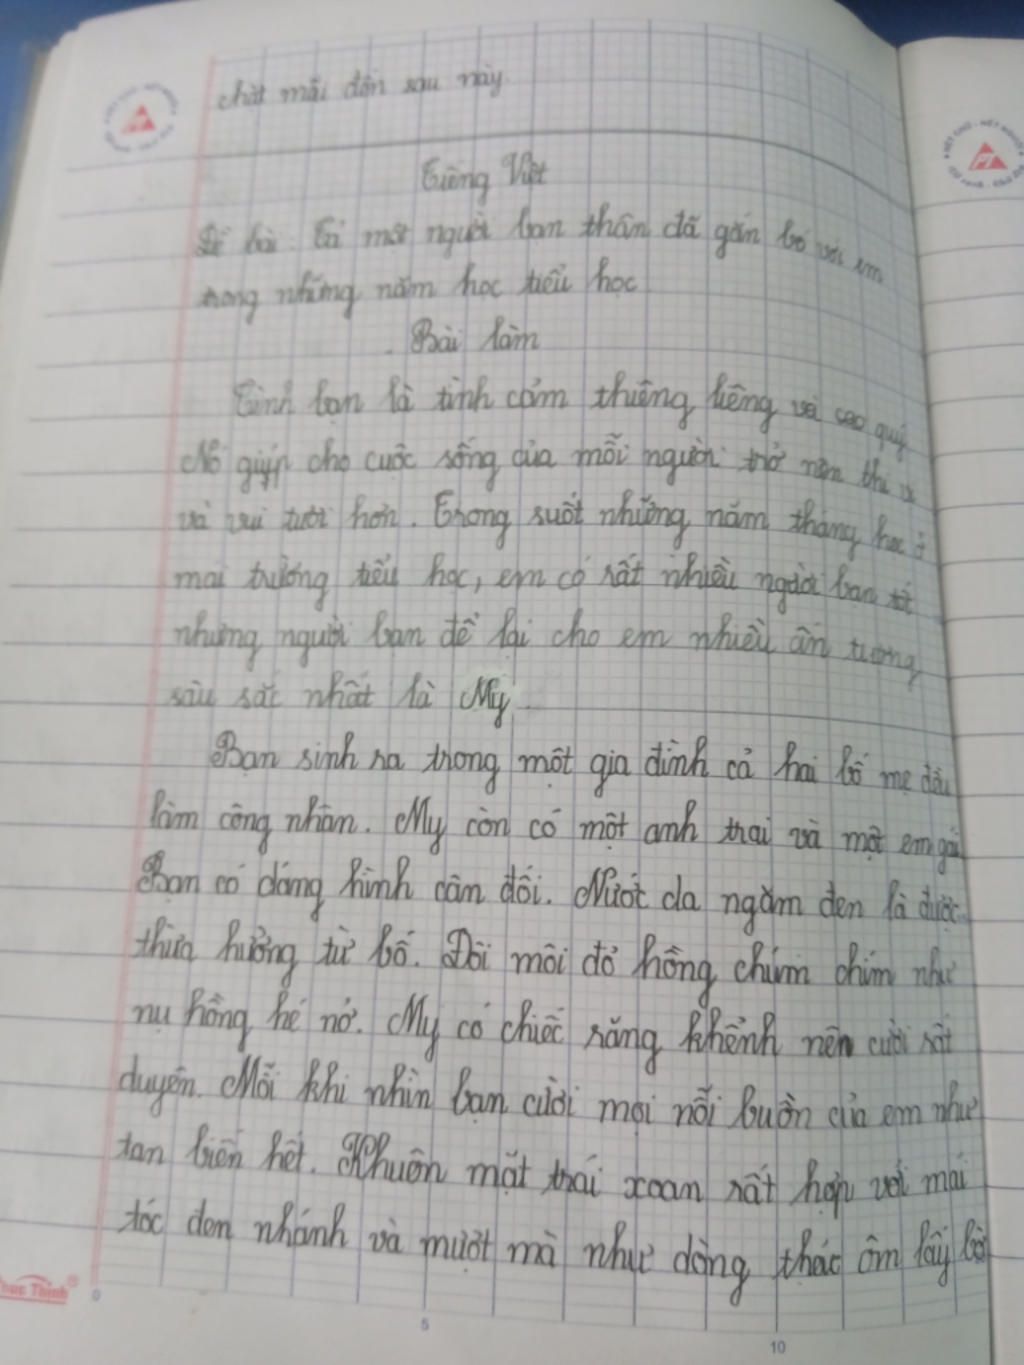 chặt mãi đến sau này.
Tiếng Việt
Đề bài: Tả một người bạn thân đã gắn bó với em
trong những năm học tiểu học
Bài làm
Tình bạn là tình cảm thiêng liêng và cao quý
Nó giúp cho cuộc sống của mỗi người trở nên thi vị
và vui tươi hơn. Trong suốt những năm tháng học ở
mái trường tiểu học, em có rất nhiều người bạn tốt
nhưng người bạn để lại cho em nhiều ấn tượng
sâu sắc nhất là My.
Bạn sinh ra trong một gia đình cả hai bố mẹ đều
làm công nhân. My còn có một anh trai và một em gái
Bạn có dáng hình cân đối. Nước da ngăm đen là được
thừa hưởng từ bố. Đôi môi đỏ hồng chúm chím như
nụ hồng hé nở. My có chiếc răng khểnh nên cười rất
duyên. Mỗi khi nhìn bạn cười mọi nỗi buồn của em như
tan biến hết. Khuôn mặt trái xoan rất hợp với mái
tóc đen nhánh và mượt mà như dòng thác ôm lấy bờ
Phúc Thịnh
0
5
10